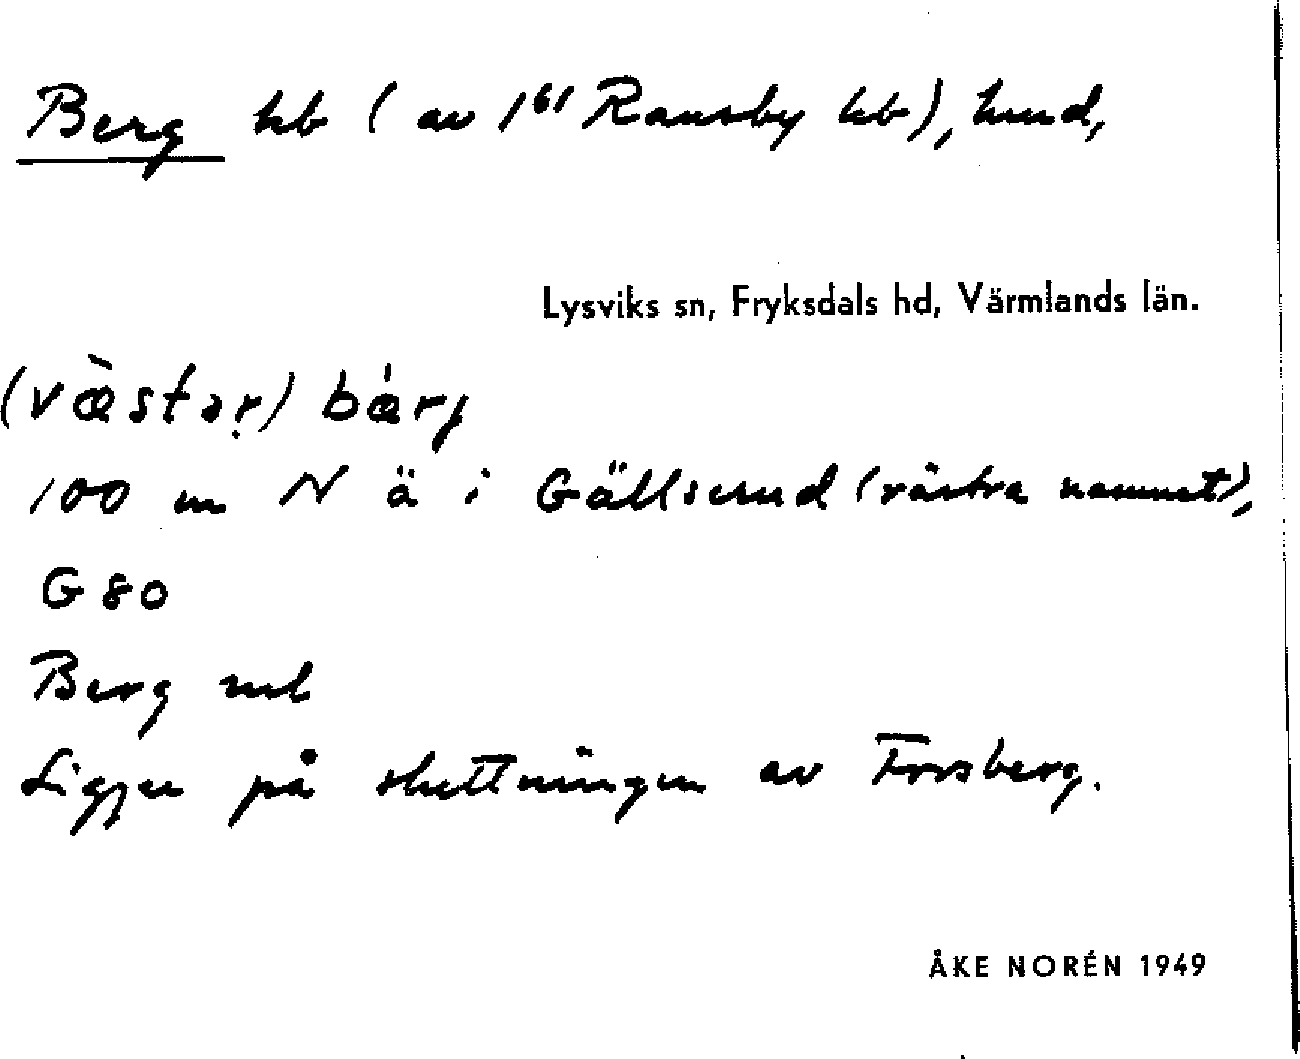 Berg hb (av 1⁶¹ Ransby hb), hmd,
Lysviks sn, Fryksdals hd, Värmlands län.
(væ̀stər) bǽrj
100 m N ä i Gällserud (västra namnet),
G80
Berg
Ligger på sluttningen av Forsberg.
ÅKE NORÉN 1949